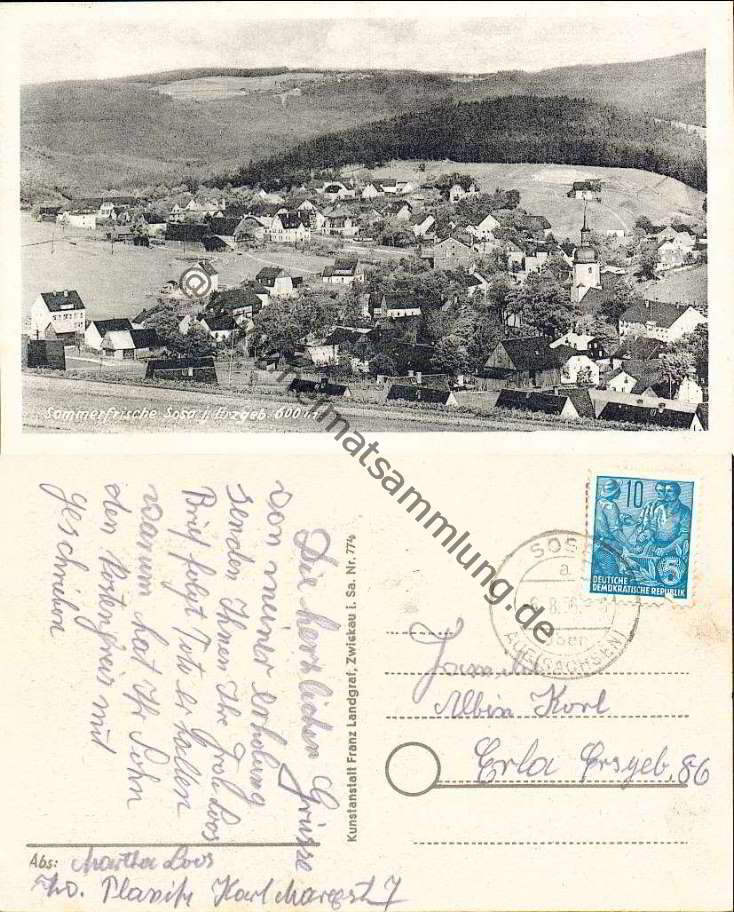 Sommerfrische Sosa i. Erzgeb. 600 m
© heimatsammlung.de
Die herzlichen Grüsse
von meiner erholung
senden Ihnen Ihr Frau Loos
Brief folgt erhallen
warum hat Ihr Sohn
den kosten preis mit
geschrieben
Kunstanstalt Franz Landgraf, Zwickau i. Sa. Nr. 774
10
DEUTSCHE
DEMOKRATISCHE REPUBLIK
SOSA
a
8.56
AUE (SACHSEN)
Albin Korl
Erla Ersgeb. 86
Abs: Martha Loos
Karl Marxst 7